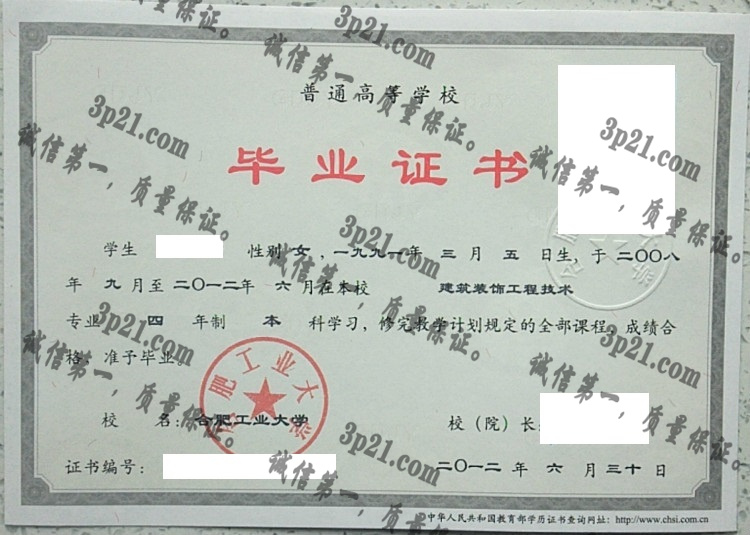 普通高等学校
毕业证书
学生 性别 女，一九九一年 三 月 五 日生，于 二〇〇八
年 九 月至 二〇一二年 六 月在本校 建筑装饰工程技术
专业 四 年制 本 科学习，修完教学计划规定的全部课程，成绩合
格，准予毕业。
校 名：合肥工业大学
校（院）长：
证书编号：
二〇一二 年 六 月 三十 日
中华人民共和国教育部学历证书查询网址：http://www.chsi.com.cn
合肥工业大学
3p21.com
诚信第一，质量保证。
3p21.com
诚信第一，质量保证。
3p21.com
诚信第一，质量保证。
3p21.com
诚信第一，质量保证。
3p21.com
诚信第一，质量保证。
3p21.com
诚信第一，质量保证。
3p21.com
诚信第一，质量保证。
3p21.com
诚信第一，质量保证。